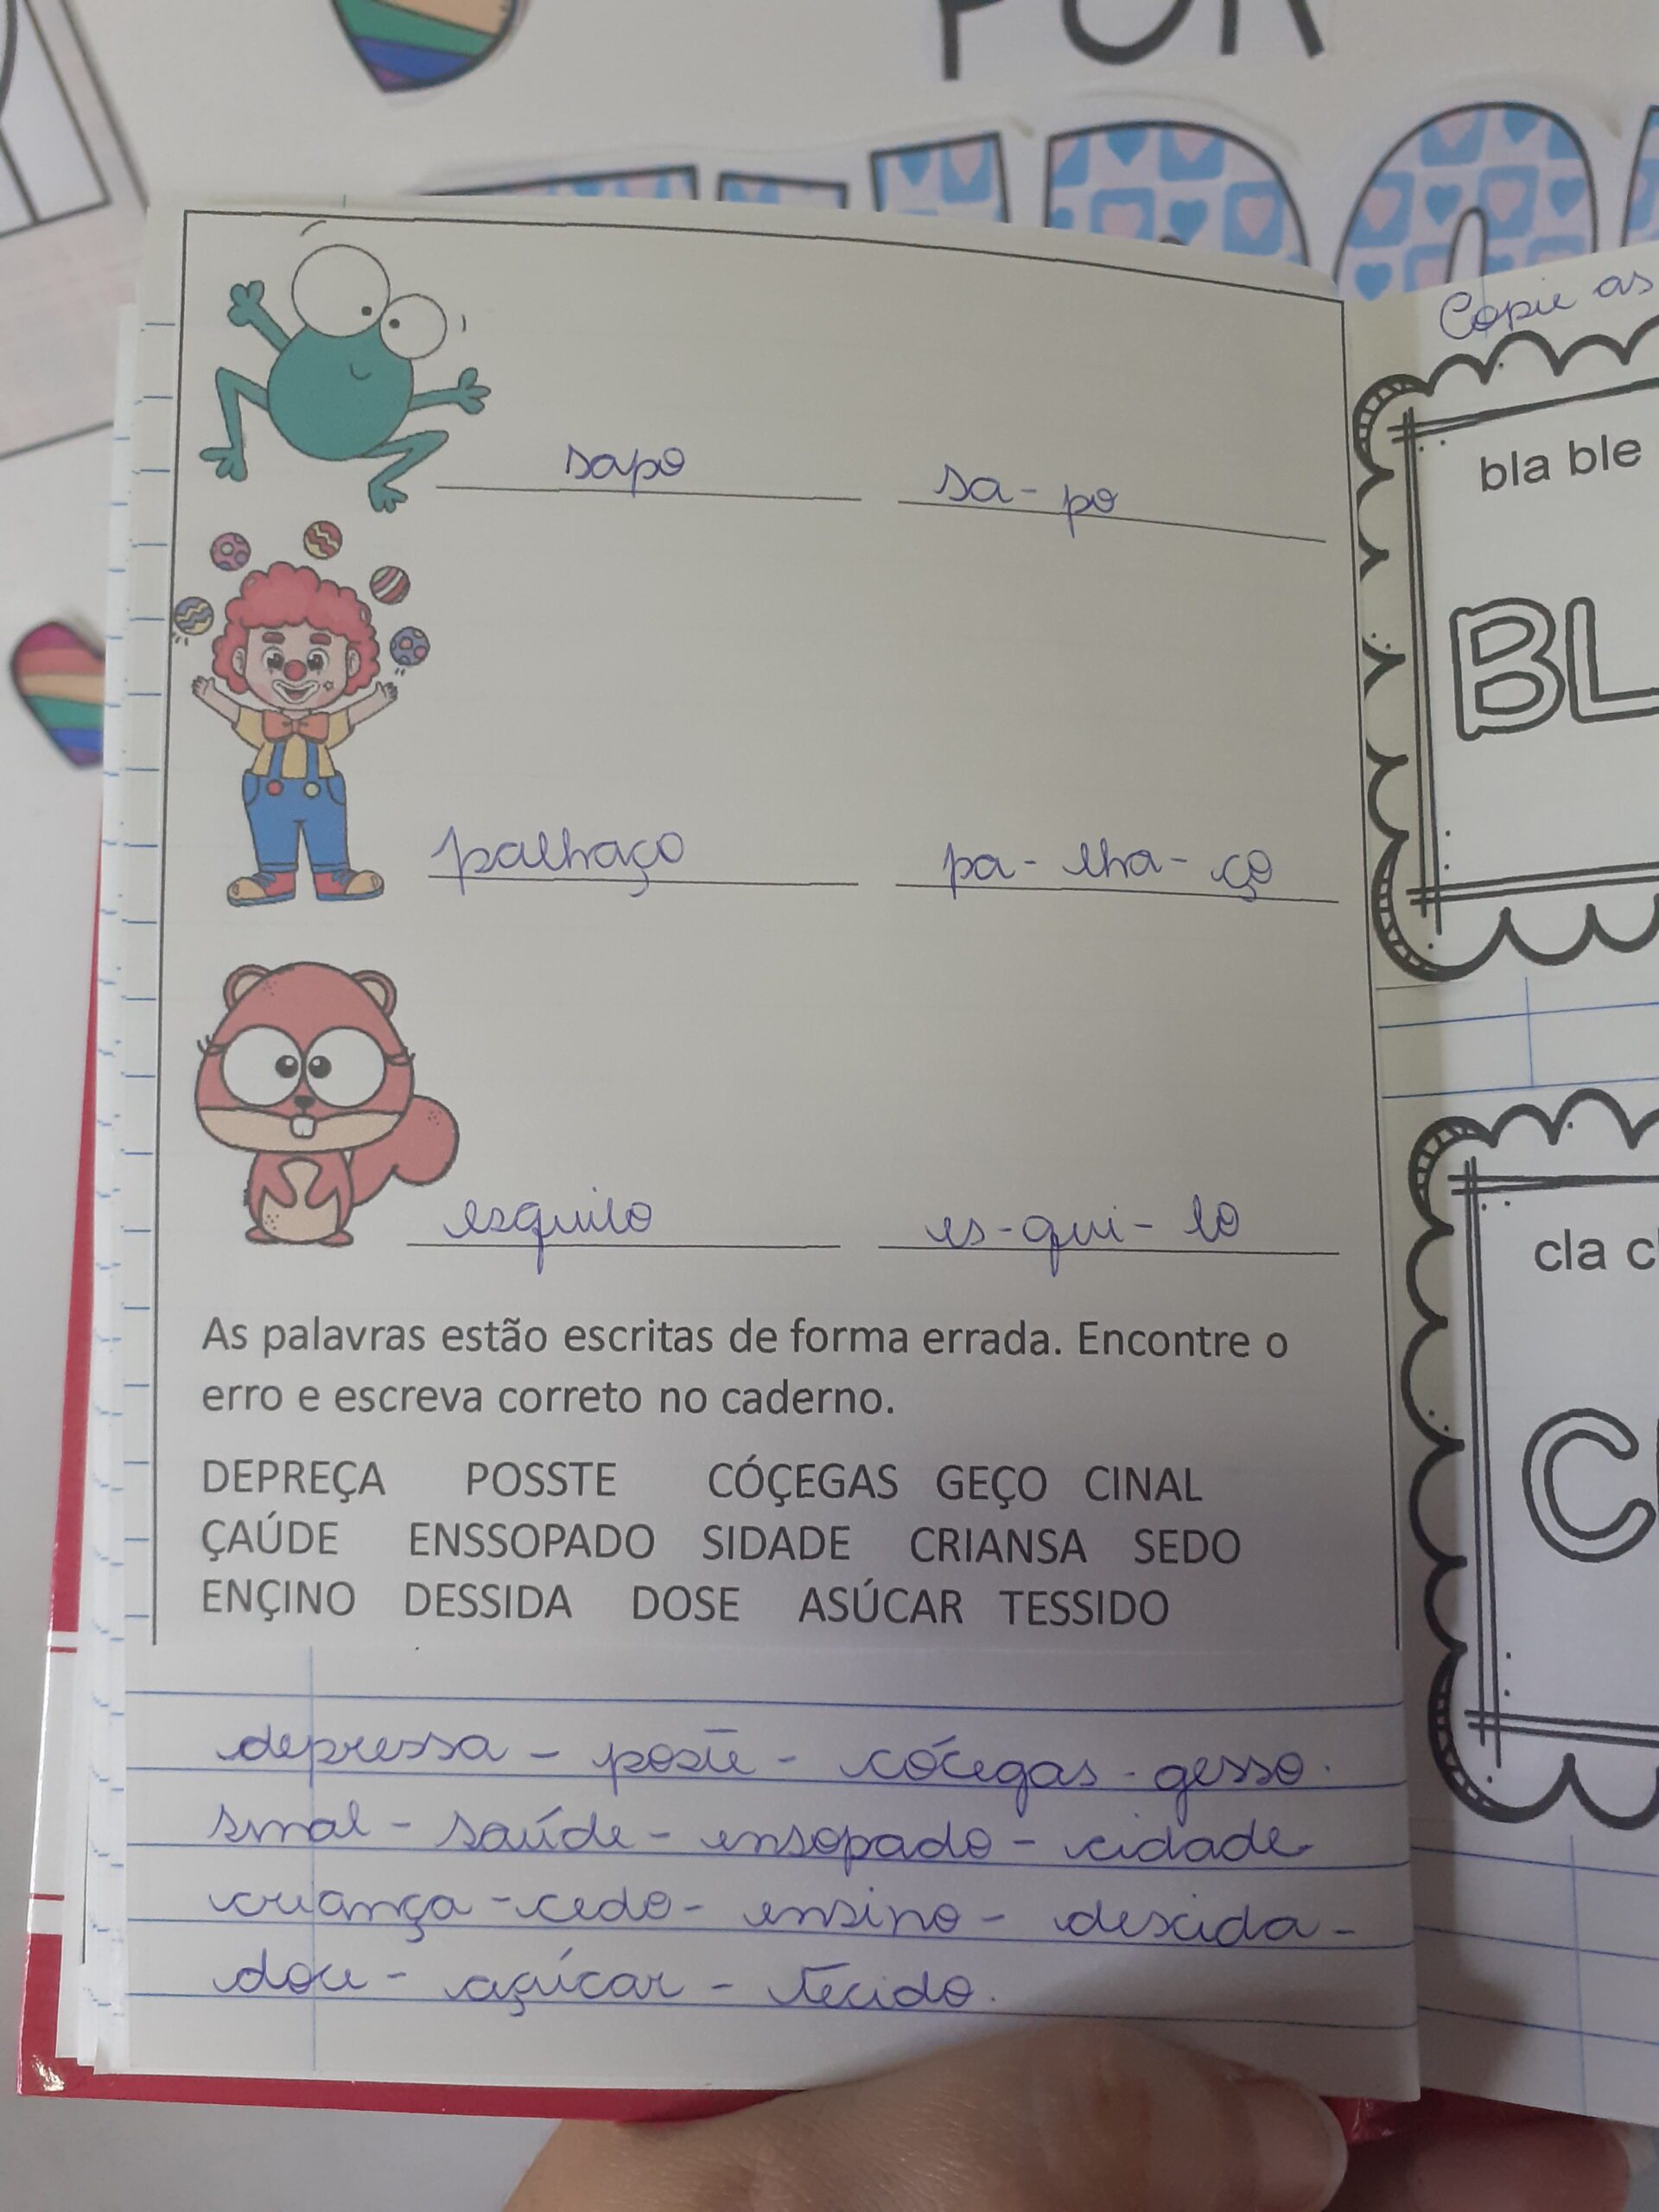 POR
Copie as
sapo sa-po
bla ble
BL
palhaço pa-lha-ço
esquilo es-qui-lo
cla c
As palavras estão escritas de forma errada. Encontre o
erro e escreva correto no caderno.
DEPREÇA POSSTE CÓÇEGAS GEÇO CINAL
ÇAÚDE ENSSOPADO SIDADE CRIANSA SEDO
ENÇINO DESSIDA DOSE ASÚCAR TESSIDO
depressa - poste - cócegas - gesso.
sinal - saúde - ensopado - cidade
criança - cedo - ensino - descida -
doce - açúcar - tecido.